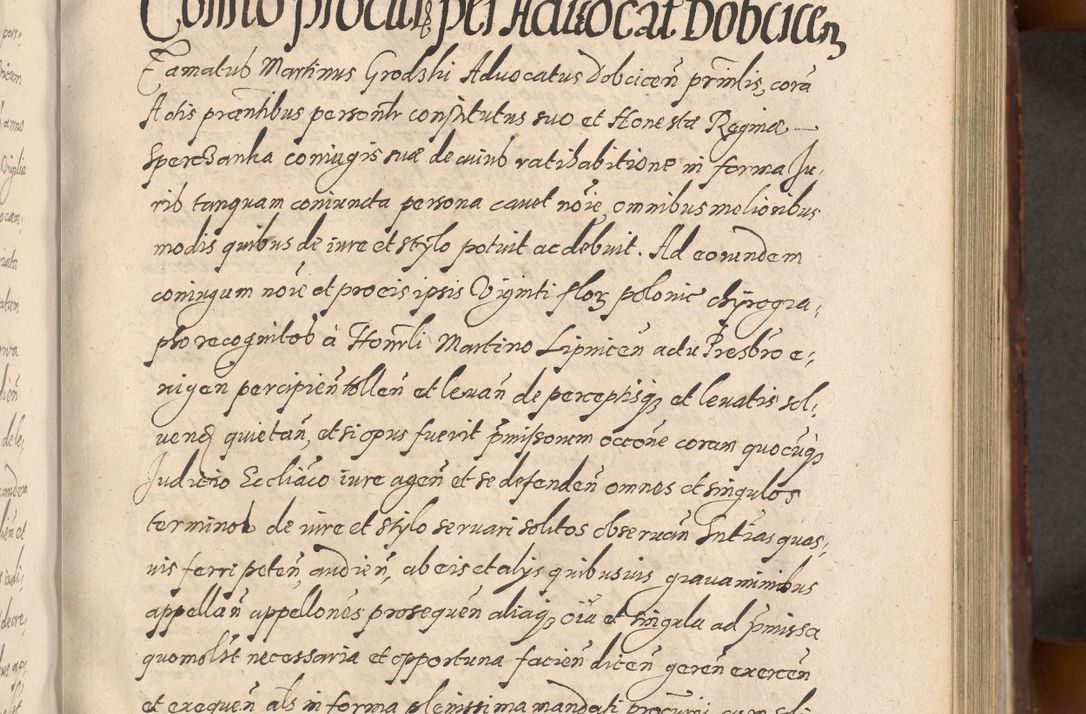 Constō procur per Advocat Dobcicen
Famatus Martinus Grodzki Advocatus Dobcicen̄ prīnlis, corā
Actis præsentibus personlr constitutus suo et Honestæ Reginæ
Sperczanka coniugis suæ de cuius ratihabitione in forma Ju,
ris tanquam coniuncta persona cavet nōīe, omnibus melioribus
modis quibus de iure et stylo potuit ac debuit. Ad eorundem
coniugum nōīe et procis ipsis Viginti flor polonic chyrogra,
pho recognitos à Honrli Martino Lipnicen̄ actu Presbro e,
xigen percipien̄ tollen̄ et levan̄ de perceptisq, et levatis sol,
vend quietan̄, et si opus fuerit p̄missorum occōne coram quocūq,
Judicio Eccliāco iure agen̄ et se defenden̄ omnes et singulos
terminos de iure et stylo servari solitos observan̄ Sntīas quas,
vis ferri peten̄ audien̄, ab eis et alys quibusvis gravaminibus
appellan̄ appellōnes prosequen̄ aliaq, oīa et singula ad p̄missa
quomolbt necessaria et opportuna facien̄ dicen̄ geren̄ exercen̄
et exequen̄ als in forma plenissima mandati procurni cum soli